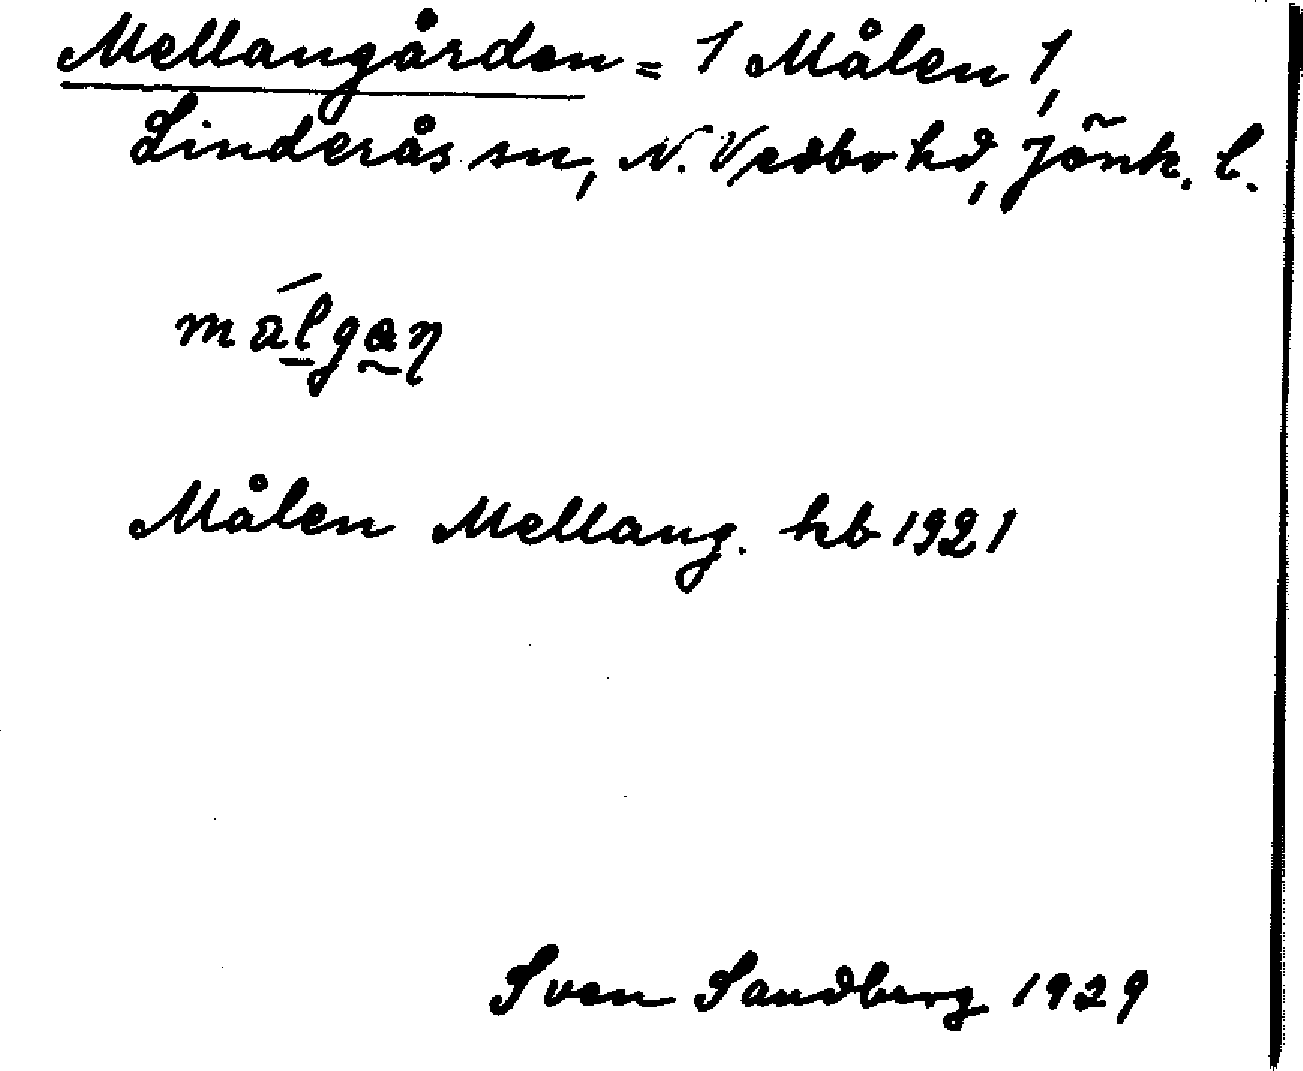 Mellangården = 1 Målen 1,
Linderås sn, N. Vedbo hd, Jönk. l.
målgaŋ
Målen Mellang. hb 1921
Sven Sandberg 1929